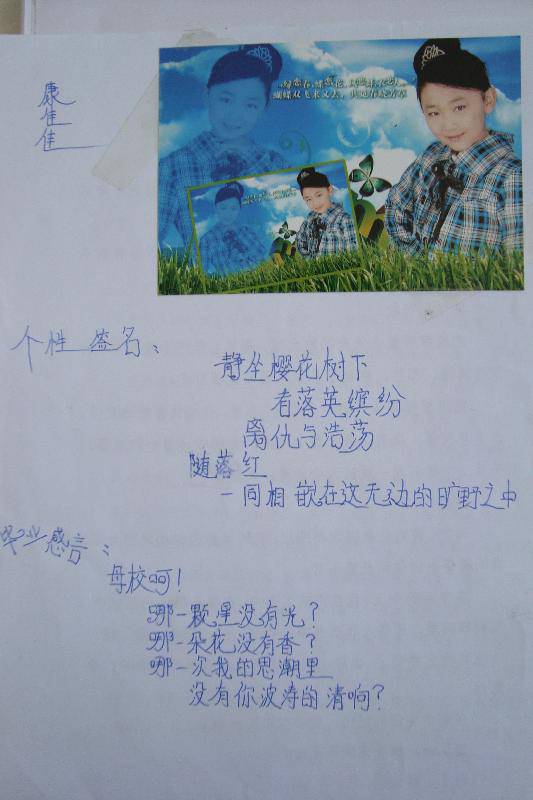 康佳佳
蝴蝶双飞来又去
个性签名：
静坐樱花树下
看落英缤纷
离仇与浩荡
随落红
一同相嵌在这无边的旷野之中
毕业感言：
母校呵！
哪一颗星没有光？
哪一朵花没有香？
哪一次我的思潮里
没有你波涛的清响？